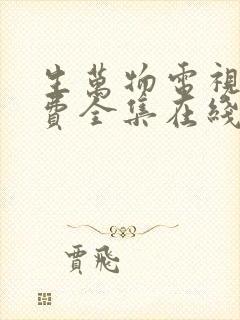 生萬物電視
費全集在綫
賈飛